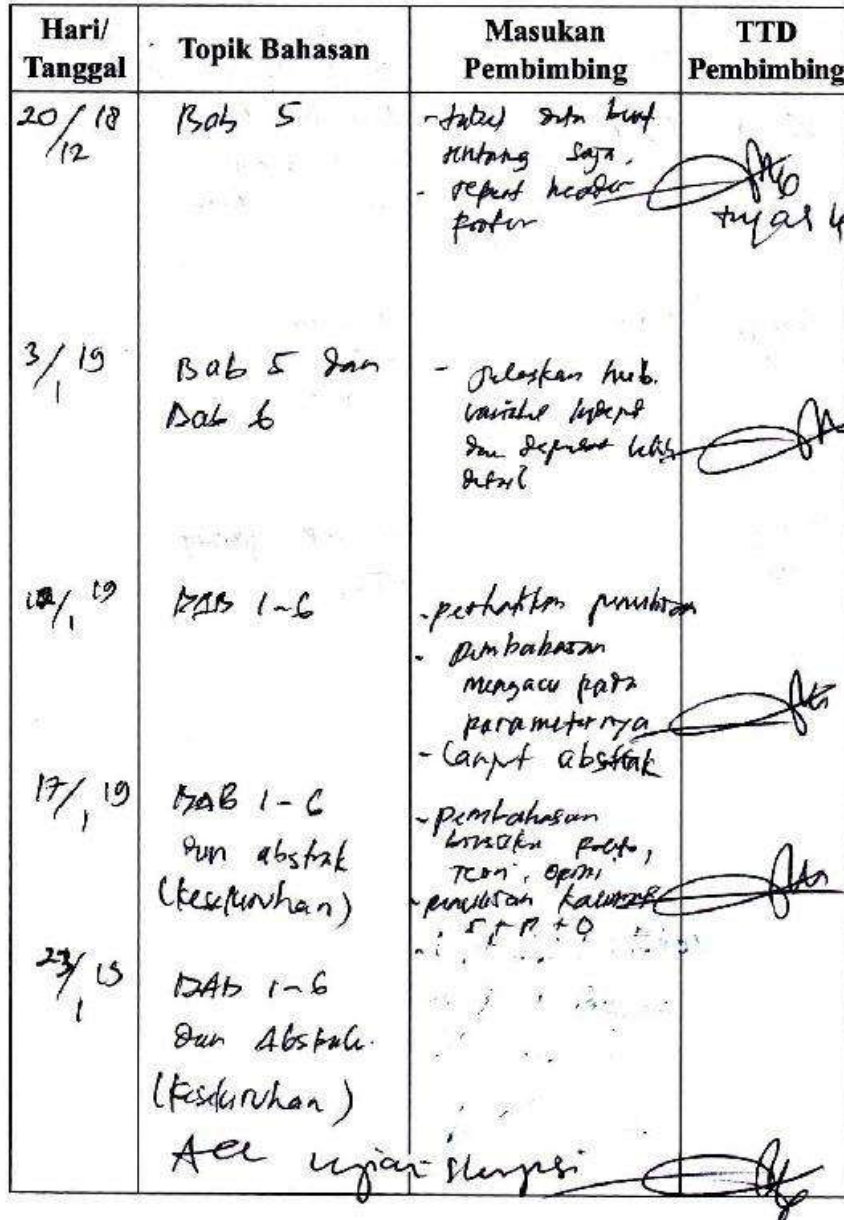 Hari/ Tanggal
Topik Bahasan
Masukan Pembimbing
TTD Pembimbing
20/12 18
Bab 5
- tabel data buat
tentang saja.
- repeat header
footer
3/1 19
Bab 5 dan
Bab 6
- Jelaskan hub.
dan dependent lebih
detail
/1 19
BAB 1-6
- perhatikan penulisan
- pembahasan
mengacu pada
parameternya
- Lanjut abstrak
17/1 19
BAB 1-6
dan abstrak
(Keseluruhan)
- pembahasan
fakta,
teori, opini
- penulisan kalimat
S + P + O
23/1 19
BAB 1-6
dan Abstrak.
(Keseluruhan)
Acc ujian skripsi